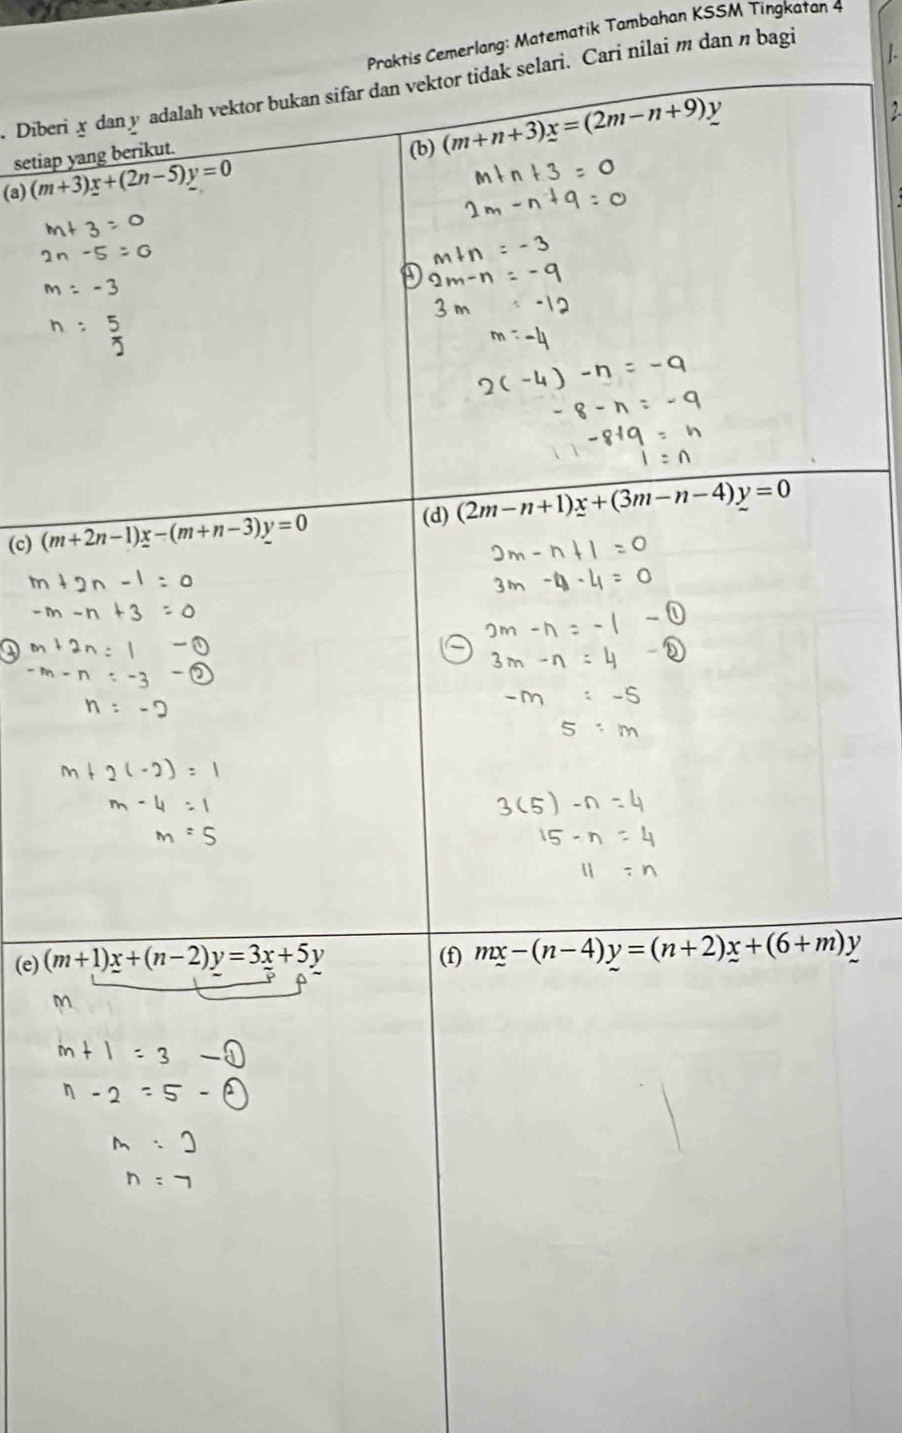 Praktis Cemerlang: Matematik Tambahan KSSM Tingkatan 4
. Diberi x dan y adalah vektor bukan sifar dan vektor tidak selari. Cari nilai m dan n bagi
setiap yang berikut.
(a) (m+3)x+(2n−5)y=0
m+3=0
2n-5=0
m=-3
n=5/2
(b) (m+n+3)x=(2m−n+9)y
m+n+3=0
2m-n+9=0
m+n=-3
2m-n=-9
3m=-12
m=-4
2(-4)-n=-9
-8-n=-9
-8+9=n
1=n
(c) (m+2n−1)x−(m+n−3)y=0
m+2n-1=0
-m-n+3=0
m+2n=1 -①
-m-n=-3 -②
n=-2
m+2(-2)=1
m-4=1
m=5
(d) (2m−n+1)x+(3m−n−4)y=0
2m-n+1=0
3m-n-4=0
2m-n=-1 -①
⊖ 3m-n=4 -②
-m=-5
5=m
3(5)-n=4
15-n=4
11=n
(e) (m+1)x+(n−2)y=3x+5y
m
m+1=3 -①
n-2=5 -②
m=2
n=7
(f) mx−(n−4)y=(n+2)x+(6+m)y
1.
2.